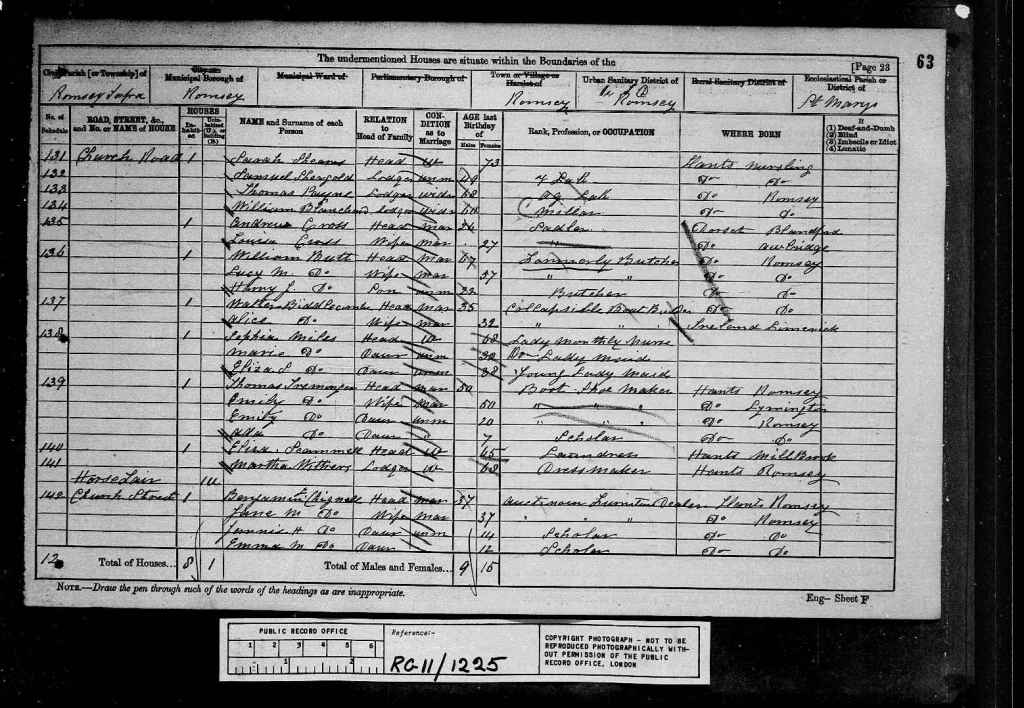 The undermentioned Houses are situate within the Boundaries of the
[Page 23
63
Civil Parish [or Township] of
City or Municipal Borough of
Municipal Ward of
Parliamentary Borough of
Town or Village or Hamlet of
Urban Sanitary District of
Rural Sanitary District of
Ecclesiastical Parish or District of
Romsey Infra Romsey Romsey Romsey St Marys
No. of Schedule
ROAD, STREET, &c., and No. or NAME of HOUSE
HOUSES
Inhabited
Uninhabited (U.), or Building (B.)
NAME and Surname of each Person
RELATION to Head of Family
CONDITION as to Marriage
AGE last Birthday of
Males Females
Rank, Profession, or OCCUPATION
WHERE BORN
If
(1) Deaf-and-Dumb
(2) Blind
(3) Imbecile or Idiot
(4) Lunatic
131 Church Road 1 Sarah Head W 73 Hants Nursling
132 Samuel Shergold Lodger unm Lab Do Do
133 Thomas Payne Lodger widr 68 Ag Lab Do Romsey
134 William Blanchard Lodger widr Miller Do Do
135 1 Andrew Cross Head mar 24 Sadler Dorset Blandford
Louisa Cross Wife mar 27 " Do Awbridge
136 1 William Butt Head mar 67 Formerly Butcher Do Romsey
Lucy M. Do Wife mar 57 " " Do Do
Henry J. Do Son unm 23 Butcher Do Do
137 1 Walter Biddlecombe Head mar 35 Collapsible Boat Builder Do Do
Alice Do Wife mar 32 " " Ireland Limerick
138 1 Sophia Miles Head W 68 Lady Monthly Nurse
Marie Do Daur unm Do Lady Maid
Eliza S. Do Daur unm 38 Young Lady Maid
139 1 Thomas Head mar 50 Boot Shoe Maker Hants Romsey
Emily Do Wife mar 50 " " " Do Lymington
Emily Do Daur unm 20 " " " Do Romsey
Ada Do Daur " 7 Scholar Do Do
140 1 Eliza Scammell Head W 65 Laundress Hants Millbrook
141 Martha Withers Lodger W 62 Dressmaker Hants Romsey
Horse Fair 1U
142 Church Street 1 Benjamin Chignell Head mar 37 Furniture Dealer Hants Romsey
Jane M Do Wife mar 37 " " " Do Romsey
Fannie H Do Daur unm 14 Scholar Do Do
Emma M Do Daur 12 Scholar Do Do
12 Total of Houses... 8 1 Total of Males and Females... 9 15
NOTE.—Draw the pen through such of the words of the headings as are inappropriate.
Eng— Sheet F
PUBLIC RECORD OFFICE
1 2 3 4 5 6
1 2
Reference:-
RG 11/1225
COPYRIGHT PHOTOGRAPH - NOT TO BE
REPRODUCED PHOTOGRAPHICALLY WITH-
OUT PERMISSION OF THE PUBLIC
RECORD OFFICE, LONDON